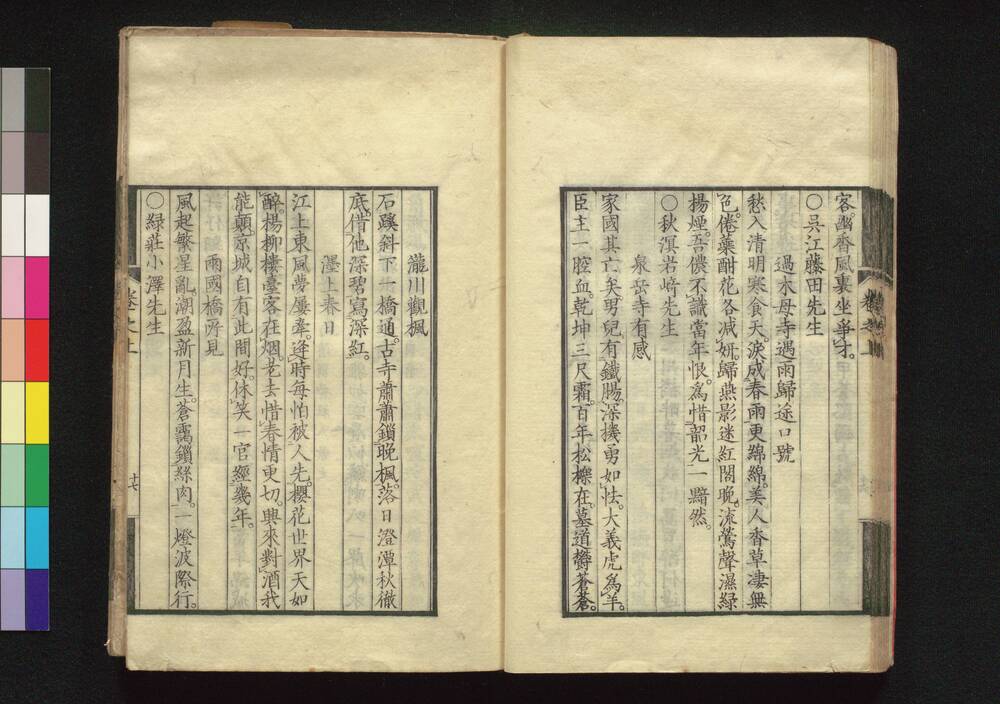 客。幽香風裏坐爭才。
○吳江藤田先生
過水母寺遇雨歸途口號
愁入清明寒食天。淚成春雨更綿綿。美人香草凄無
色。倦藥酣花各減妍。歸燕影迷紅閣晚。流鶯聲濕綠
楊煙。吾儂不識當年恨。爲惜韶光一黯然。
○秋溟岩﨑先生
泉岳寺有感
家國其亡矣。男兒有鐵膓。深機勇如怯。大義虎爲羊。
臣主一腔血。乾坤三尺霜。百年松檟在。墓道鬱蒼蒼。
卷之上
瀧川觀楓
石蹊斜下一橋通。古寺蕭蕭鎖晚楓。落日澄潭秋徹
底。借他深碧寫深紅。
墨上春日
江上東風夢屢牽。逢時每怕被人先。櫻花世界天如
醉。楊柳樓臺客在烟。老去惜春情更切。興來對酒我
能顛。京城自有此閒好。休笑一官經幾年。
兩國橋所見
風起繁星亂。潮盈新月生。蒼靄鎖絲肉。一燈波際行。
○綠莊小澤先生
卷之上